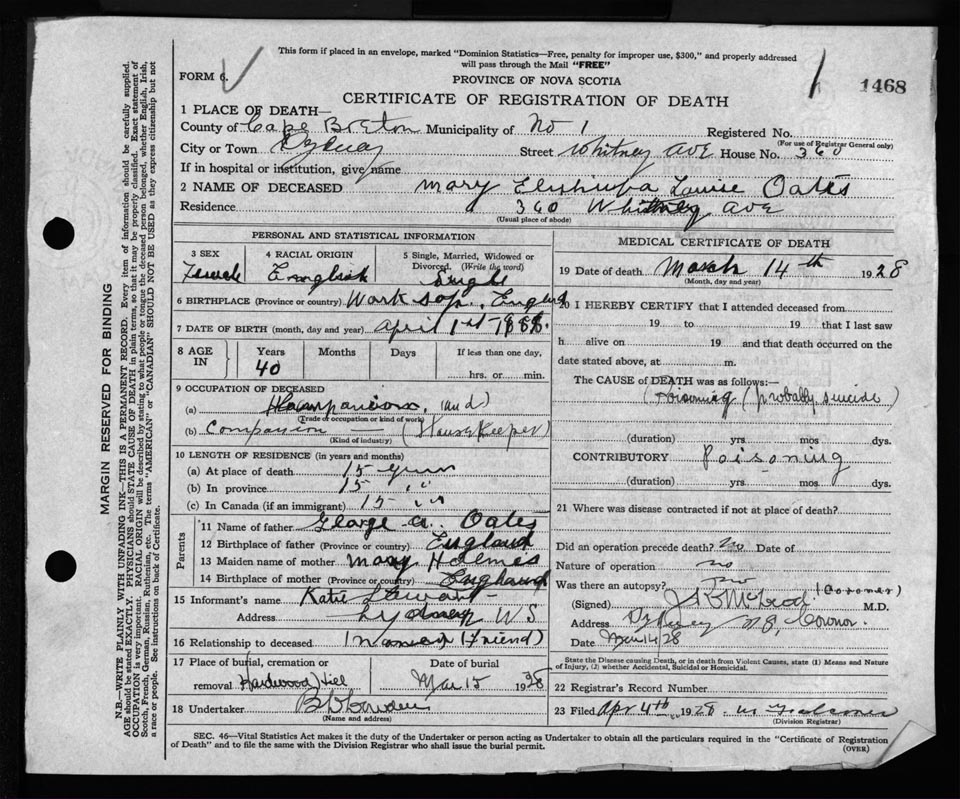 This form if placed in an envelope, marked "Dominion Statistics—Free, penalty for improper use, $300," and properly addressed
will pass through the Mail "FREE"
FORM 6.
PROVINCE OF NOVA SCOTIA
1 1468
CERTIFICATE OF REGISTRATION OF DEATH
1 PLACE OF DEATH—
County of Cape Breton Municipality of No 1 Registered No.
(For use of Registrar General only)
City or Town Sydney Street Whitney Ave House No. 360
If in hospital or institution, give name
2 NAME OF DECEASED Mary Louise Oates
Residence 360 Whitney Ave
(Usual place of abode)
PERSONAL AND STATISTICAL INFORMATION
3 SEX Female
4 RACIAL ORIGIN English
5 Single, Married, Widowed or Divorced. (Write the word) Single
6 BIRTHPLACE (Province or country) Worksop, England
7 DATE OF BIRTH (month, day and year) April 1st 1888.
8 AGE IN Years 40 Months Days If less than one day, hrs. or min.
9 OCCUPATION OF DECEASED
(a) Companion, and
(Trade or occupation or kind of work)
(b) Companion — (Housekeeper)
(Kind of industry)
10 LENGTH OF RESIDENCE (in years and months)
(a) At place of death 15 years
(b) In province 15 " "
(c) In Canada (if an immigrant) 15 " "
Parents
11 Name of father George A. Oates
12 Birthplace of father (Province or country) England
13 Maiden name of mother Mary Holmes
14 Birthplace of mother (Province or country) England
15 Informant's name Katie Stewart
Address Sydney N S
16 Relationship to deceased (Friend)
17 Place of burial, cremation or removal Hardwood Hill
Date of burial Mar 15 1928
18 Undertaker
(Name and address)
MEDICAL CERTIFICATE OF DEATH
19 Date of death March 14th 1928
(Month, day and year)
20 I HEREBY CERTIFY that I attended deceased from
19 to 19 that I last saw
h alive on 19 and that death occurred on the
date stated above, at m.
The CAUSE of DEATH was as follows:—
Poisoning (probably suicide)
(duration) yrs. mos. dys.
CONTRIBUTORY Poisoning
(duration) yrs. mos. dys.
21 Where was disease contracted if not at place of death?
Did an operation precede death? no Date of
Nature of operation no
Was there an autopsy? no
(Signed) McLeod (Coroner) M.D.
Address Sydney N.S. Coroner.
Date Mar 14/28
State the Disease causing Death, or in death from Violent Causes, state (1) Means and Nature of Injury, (2) whether Accidental, Suicidal or Homicidal.
22 Registrar's Record Number
23 Filed Apr 4th 1928
(Division Registrar)
SEC. 46—Vital Statistics Act makes it the duty of the Undertaker or person acting as Undertaker to obtain all the particulars required in the "Certificate of Registration
of Death" and to file the same with the Division Registrar who shall issue the burial permit.
(OVER)
MARGIN RESERVED FOR BINDING
N.B.—WRITE PLAINLY WITH UNFADING INK—THIS IS A PERMANENT RECORD. Every item of information should be carefully supplied.
AGE should be stated EXACTLY. PHYSICIANS should STATE CAUSE OF DEATH in plain terms, so that it may be properly classified. Exact statement of
OCCUPATION is very important. RACIAL ORIGIN will be described by stating to what people or tongue the deceased person belonged, whether English, Irish,
Scotch, French, German, Russian, Ruthenian, etc. The terms "AMERICAN" or "CANADIAN" SHOULD NOT BE USED as they express citizenship but not
a race or people. See instructions on back of Certificate.